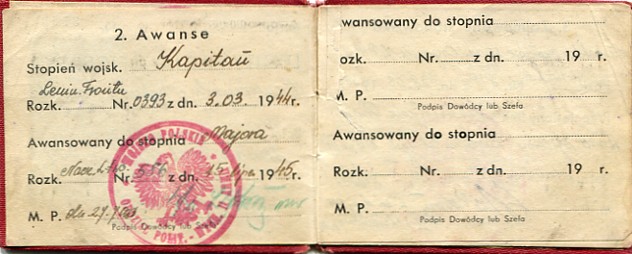 2. Awanse
Stopień wojsk. Kapitan
Lenin. Frontu
Rozk. Nr. 0393 z dn. 3.03. 1944 r.
Awansowany do stopnia Majora
Rozk. Nr. 556 z dn. 15 lipca 1945 r.
M. P. dn 27.
Podpis Dowódcy lub Szefa
WOJSKO POLSKIE
wansowany do stopnia
ozk. Nr. z dn. 19 r.
M. P.
Podpis Dowódcy lub Szefa
Awansowany do stopnia
Rozk. Nr. z dn. 19 r.
M. P.
Podpis Dowódcy lub Szefa